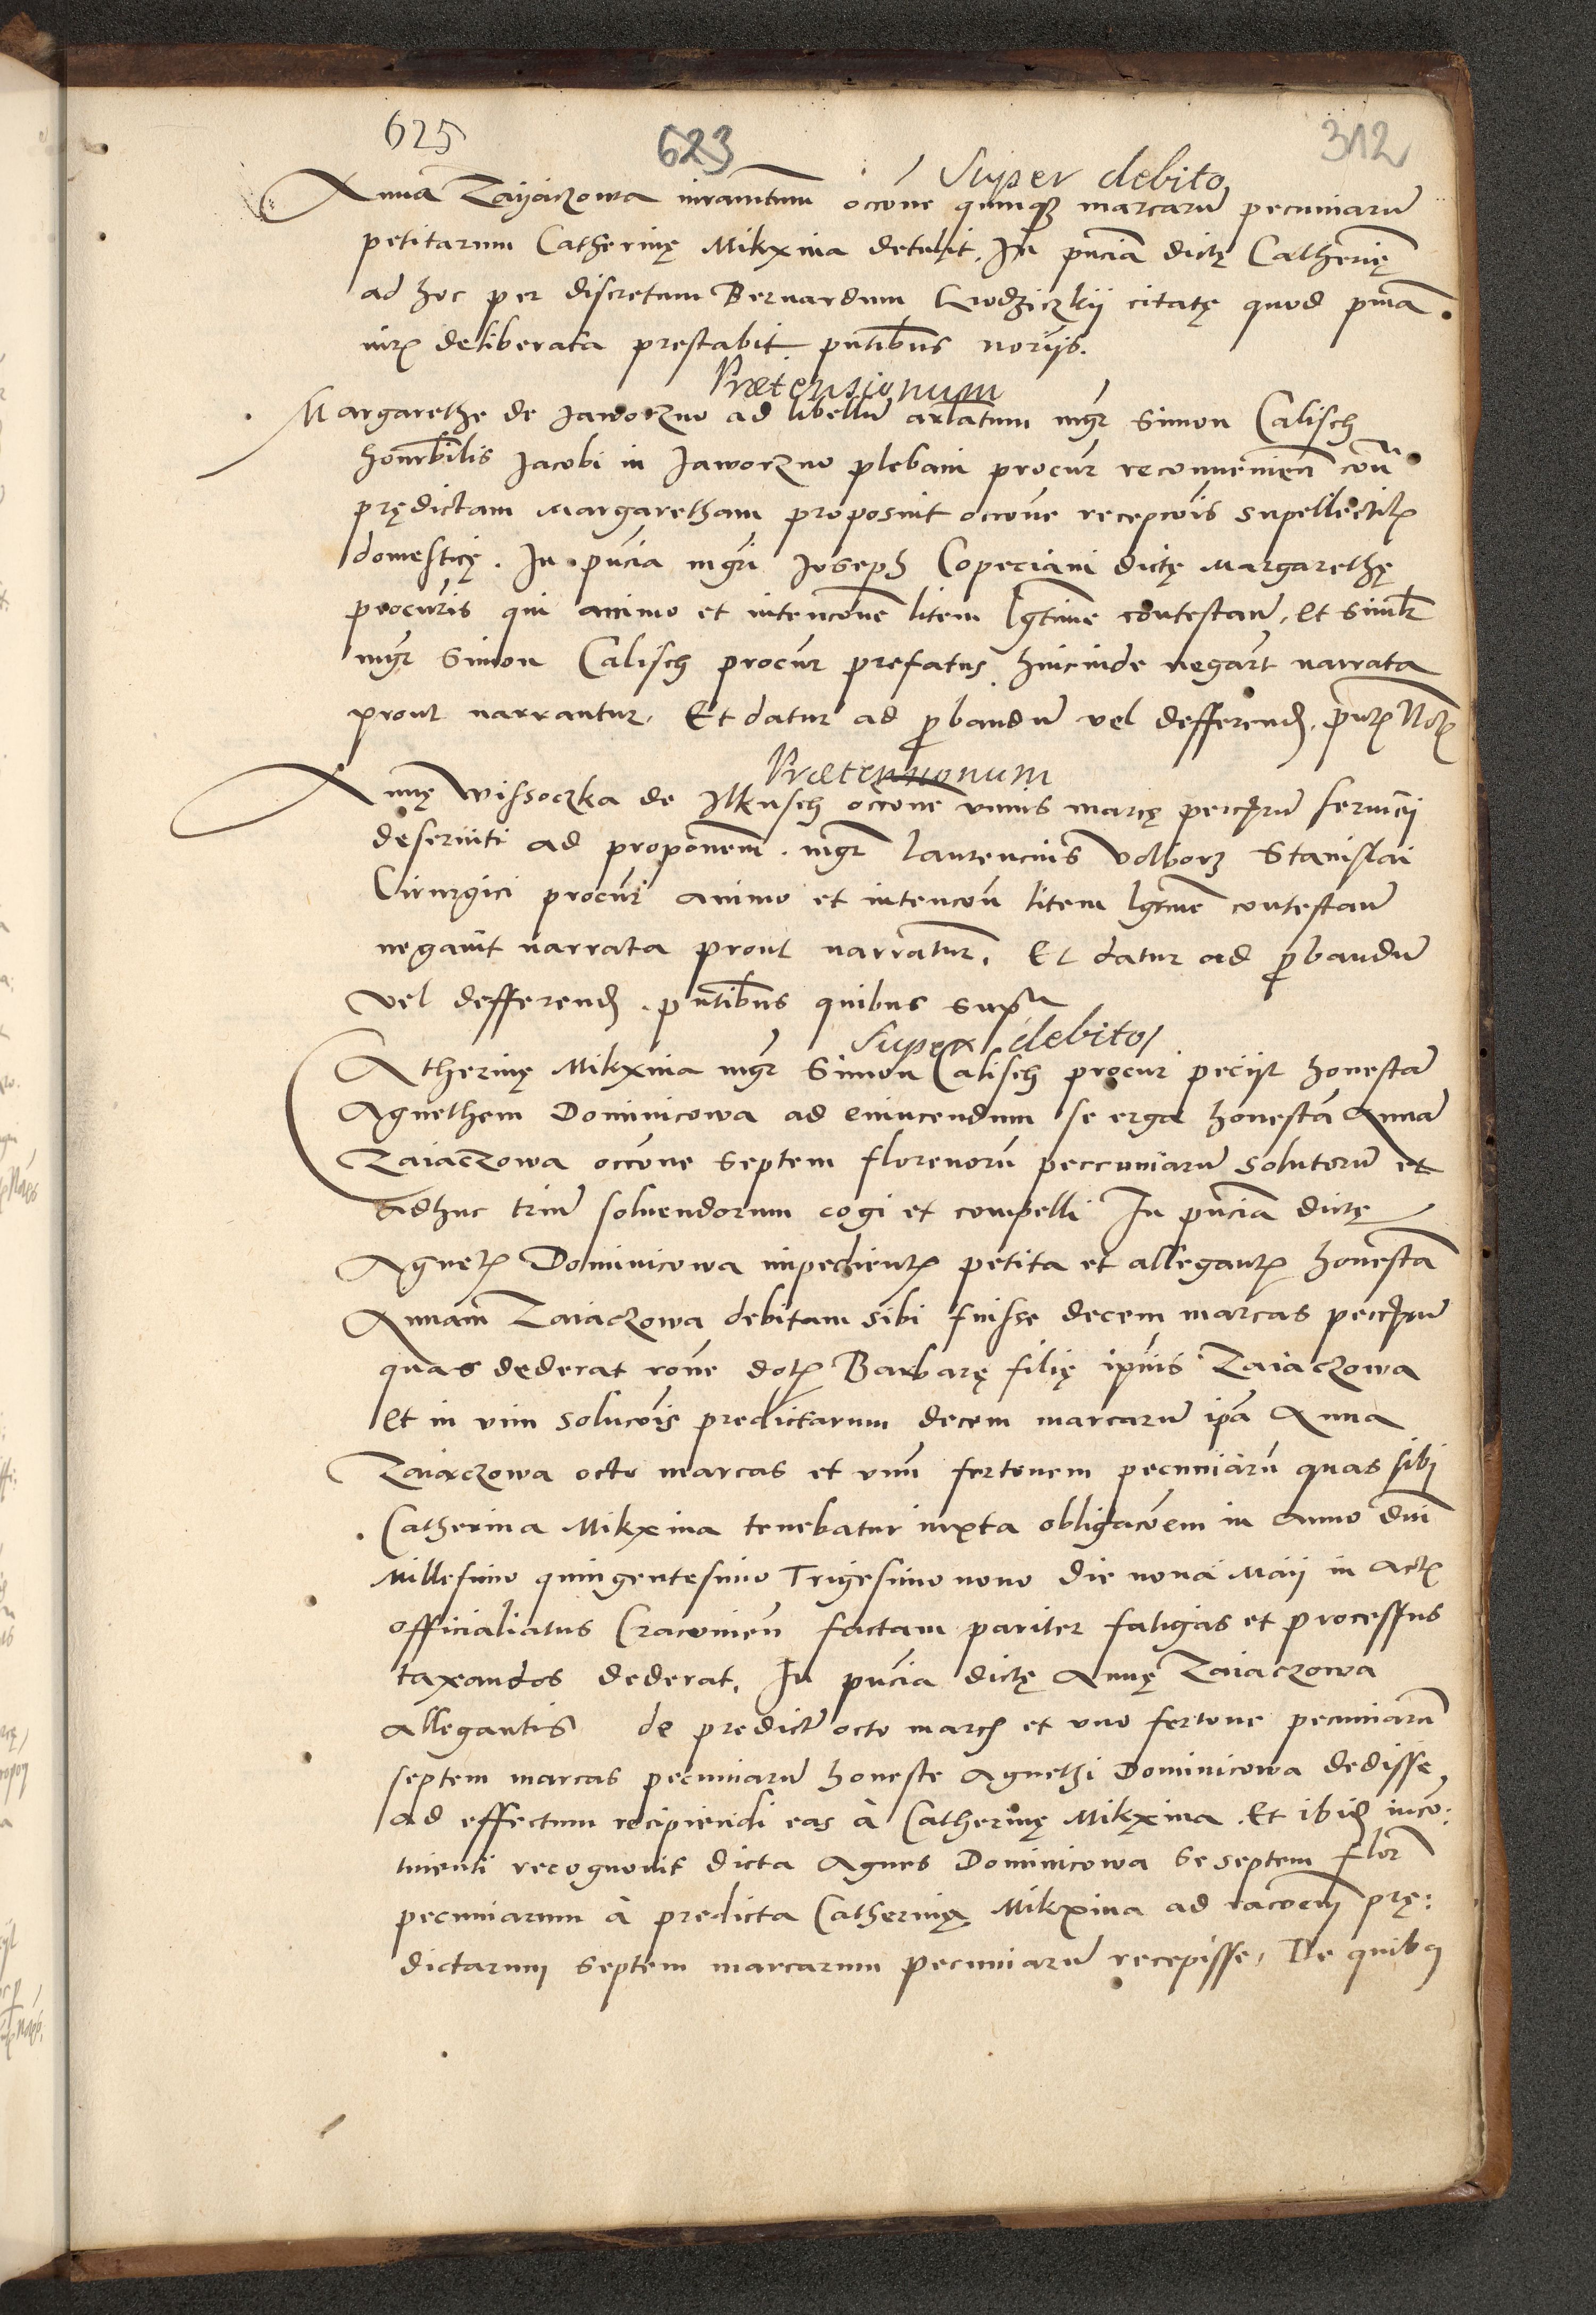 625 623 312
Super debito
Anna Zaijaczowa iuramẽtum occõne quinq3 marcarũ pecuniarũ
petitarum Catherinę Mikxina detulit. In pñcia dictę Catherinę
ad hoc per discretum Bernardum Grodziczkij citatę quod pma
iur deliberata prestabit pñtibus norijs.
Prætensionum
Margarethe de Jaworzno ad libellũ oblatum mgr Simon Calisch
honorbilis Jacobi in Jaworzno plebani procur reconvenieñ coñ
prędictam Margaretham proposuit occõne recepcõis supellectil
domesticę. In pñcia mgri Joseph Copeciani dictę Margarethę
procuris qui animo et intencõne litem lgtime contestañ, et similr
mgr Simon Calisch procur prefatus hincinde negart narrata
prout narrantur. Et datur ad pbandũ vel defferend. pñt Not
Prætensionum
Annę Wissoczka de Ilkusch occõne unius marcę pecũrũ servicij
deserviti ad proponem. mgr Laurencius Volborz Stanislai
Cirurgici procur animo et intencoñ litem lgtime contestañ
negavit narrata prout narratur. Et datur ad pbandũ
vel defferend. pñtibus quibus supra
Super debito
Catherinę Mikxina mgr Simon Calisch procur peciit honestã
Agnethem Dominicowa ad evincendum se erga honestã Annã
Zaiaczowa occõne septem florenorũ peccuniarũ solutorũ et
adhuc triũ solvendorum cogi et compelli In pñcia dictę
Agnet Dominicowa impedient petita et allegant honestã
Annam Zaiaczowa debitam sibi fuisse decem marcas peccũrũ
quas dederat rõne dot Barbarę filię ipsius Zaiaczowa
Et in vim solucõis predictarum decem marcarũ ipã Anna
Zaiaczowa octo marcas et unũ fertonem pecuniarũ quas sibi
Catherina Mikxina tenebatur iuxta obligacõem in anno dñi
Millesimo quingentesimo Trigesimo nono die nona Maij in Act
officialatus Cracovieñ factam pariter fatigas et processus
taxandos dederat. In pñcia dictę Annę Zaiaczowa
allegantis de predict octo march et uno fertone pecuniarũ
septem marcas pecuniarũ honeste Agnethi Dominicowa dedisse
ad effectum recipiendi eas à Catherinę Mikxina. Et ibid inco:
tinenti recognovit dicta Agnes Dominicowa se septem flor
pecuniarum à predicta Catherina Mikxina ad racõem prę:
dictarum septem marcarum pecuniarũ recepisse, De quibq